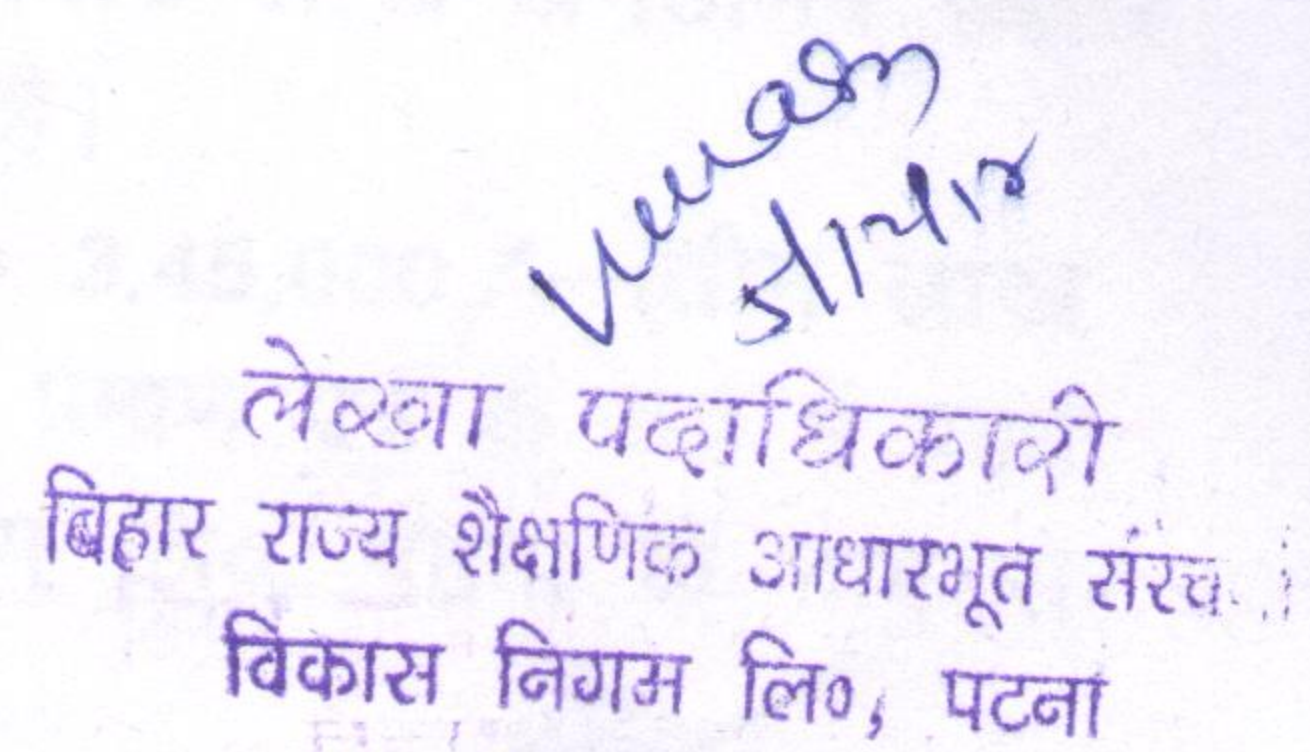 लेखा पदाधिकारी
बिहार राज्य शैक्षणिक आधारभूत
विकास निगम लि०, पटना